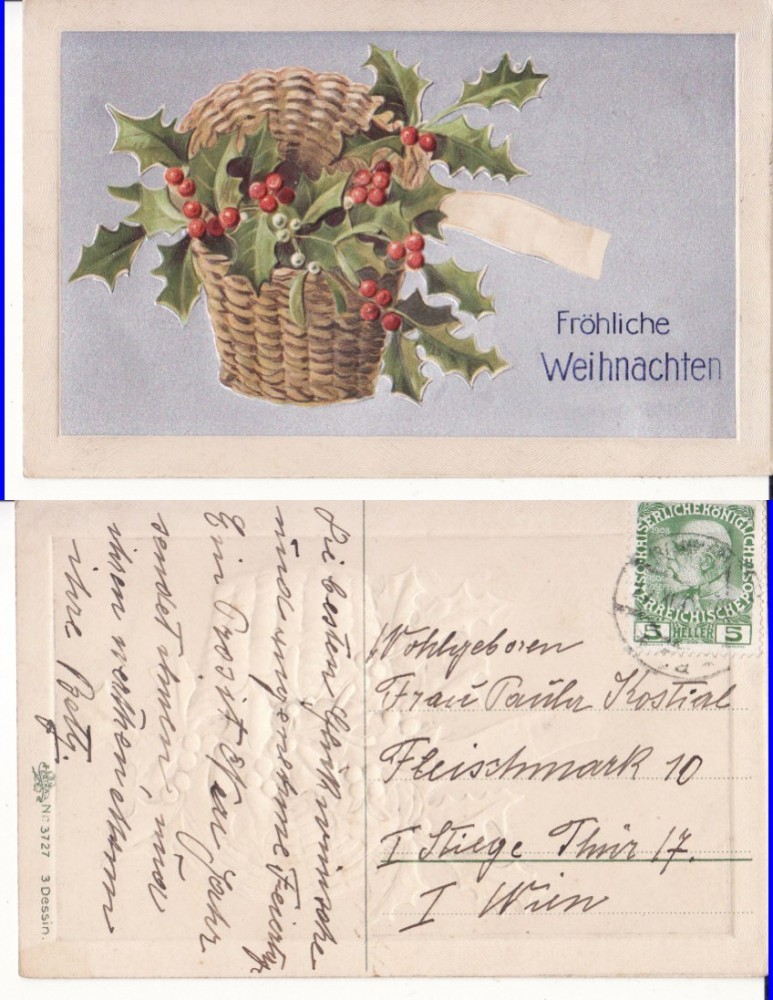 Fröhliche
Weihnachten
Die besten Glückwünsche
und angenehme Feiertg
Ein Prosit Neu Jahr
sendet ihnen, und
ihren werthen
ihre Betty.
Nr. 3727 3 Dessin.
KAISERLICHE KÖNIGLICHE
ÖSTERREICHISCHE POST
5 HELLER 5
Wohlgeboren
Frau Kostial
Fleischmark 10
I Stiege Thür 17.
I Wien